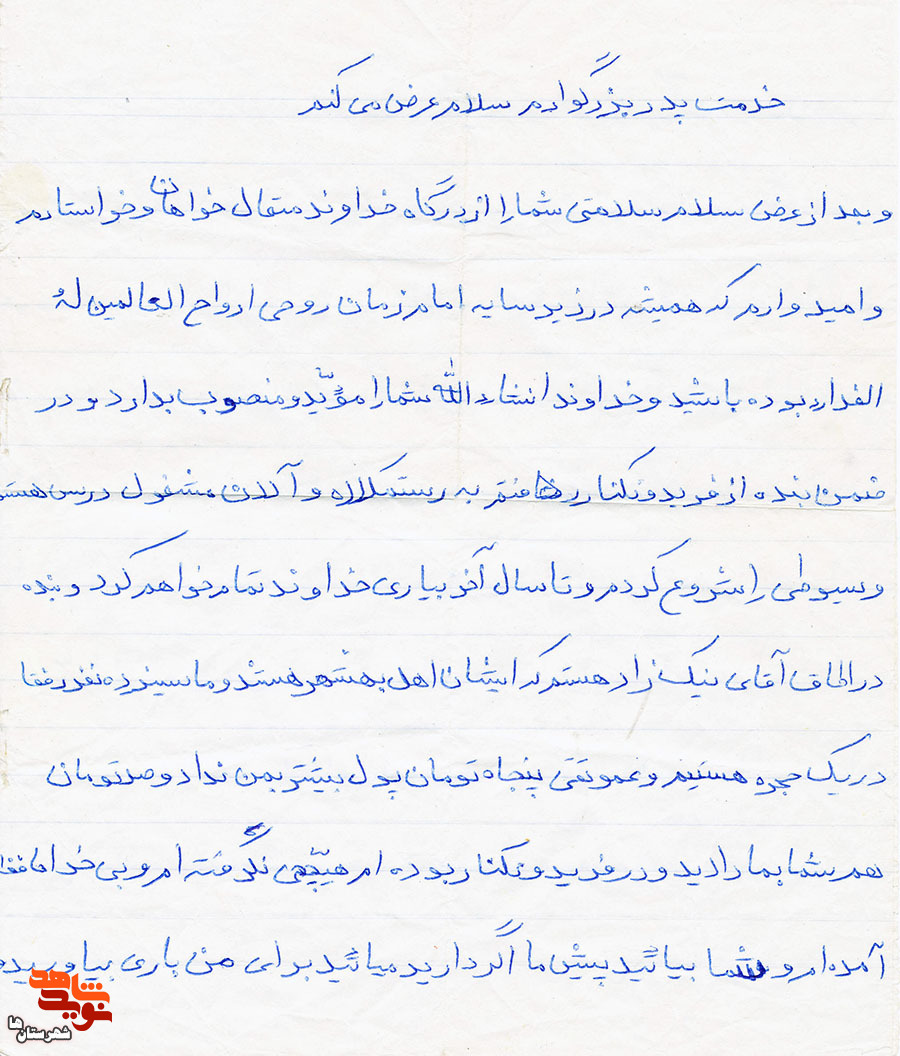 خدمت پدر بزرگوارم سلام عرض می کنم
و بعد از عرض سلام سلامتی شما را از درگاه خداوند متعال خواهان و خواستارم
و امیدوارم که همیشه در زیر سایه امام زمان روحی ارواح العالمین لهُ
الفداء بوده باشید و خداوند انشاءالله شما را مؤیّد و منصوب بدارد و در
ضمن بنده از فریدونکنار رفتم به رستمکلا و آلان مشغول درس هستم
و سیوطی را شروع کردم و تا سال آخر بیاری خداوند تمام خواهم کرد و بنده
در اطاق آقای نیک زاد هستم که ایشان اهل بهشهر هستند و ما سیزده نفر رفقا
در یک حجره هستیم و عموتقی پنجاه تومان پول بیشتر بمن نداد و صد تومان
هم شما بما دادید و در فریدونکنار بوده ام هیچّی نگرفته ام و بی خداحافظ
آمده ام و شما بیائید پیش ما اگر دارید میائید برای من باری بیاورید و
نوید شاهد
شهرستان ها